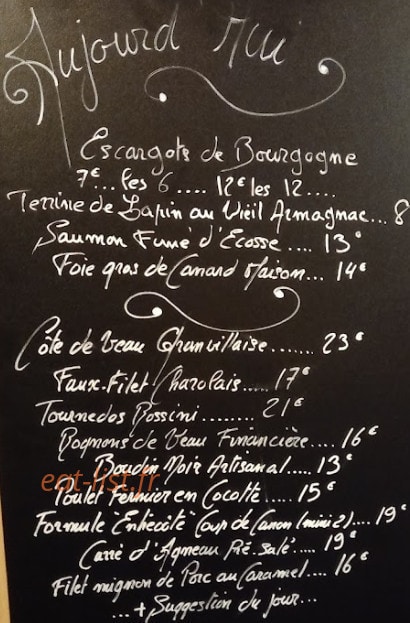 Aujourd'hui
Escargots de Bourgogne
7€... les 6.... 12€ les 12....
Terrine de Lapin au Vieil Armagnac... 8
Saumon Fumé d'Ecosse.... 13€
Foie gras de Canard Maison... 14€
Côte de Veau Granvillaise....... 23€
Faux-Filet Charolais..... 17€
Tournedos Rossini......... 21€
Rognons de Veau Financière.... 16€
Boudin Noir Artisanal..... 13€
eat-list.fr
Poulet Fermier en Cocotte.... 15€
Formule "Entrecôte" Coup de Canon (mini 2).... 19€
Carré d'Agneau Pré-salé.... 19€
Filet mignon de Porc au Caramel.... 16€
...+ Suggestion du jour...